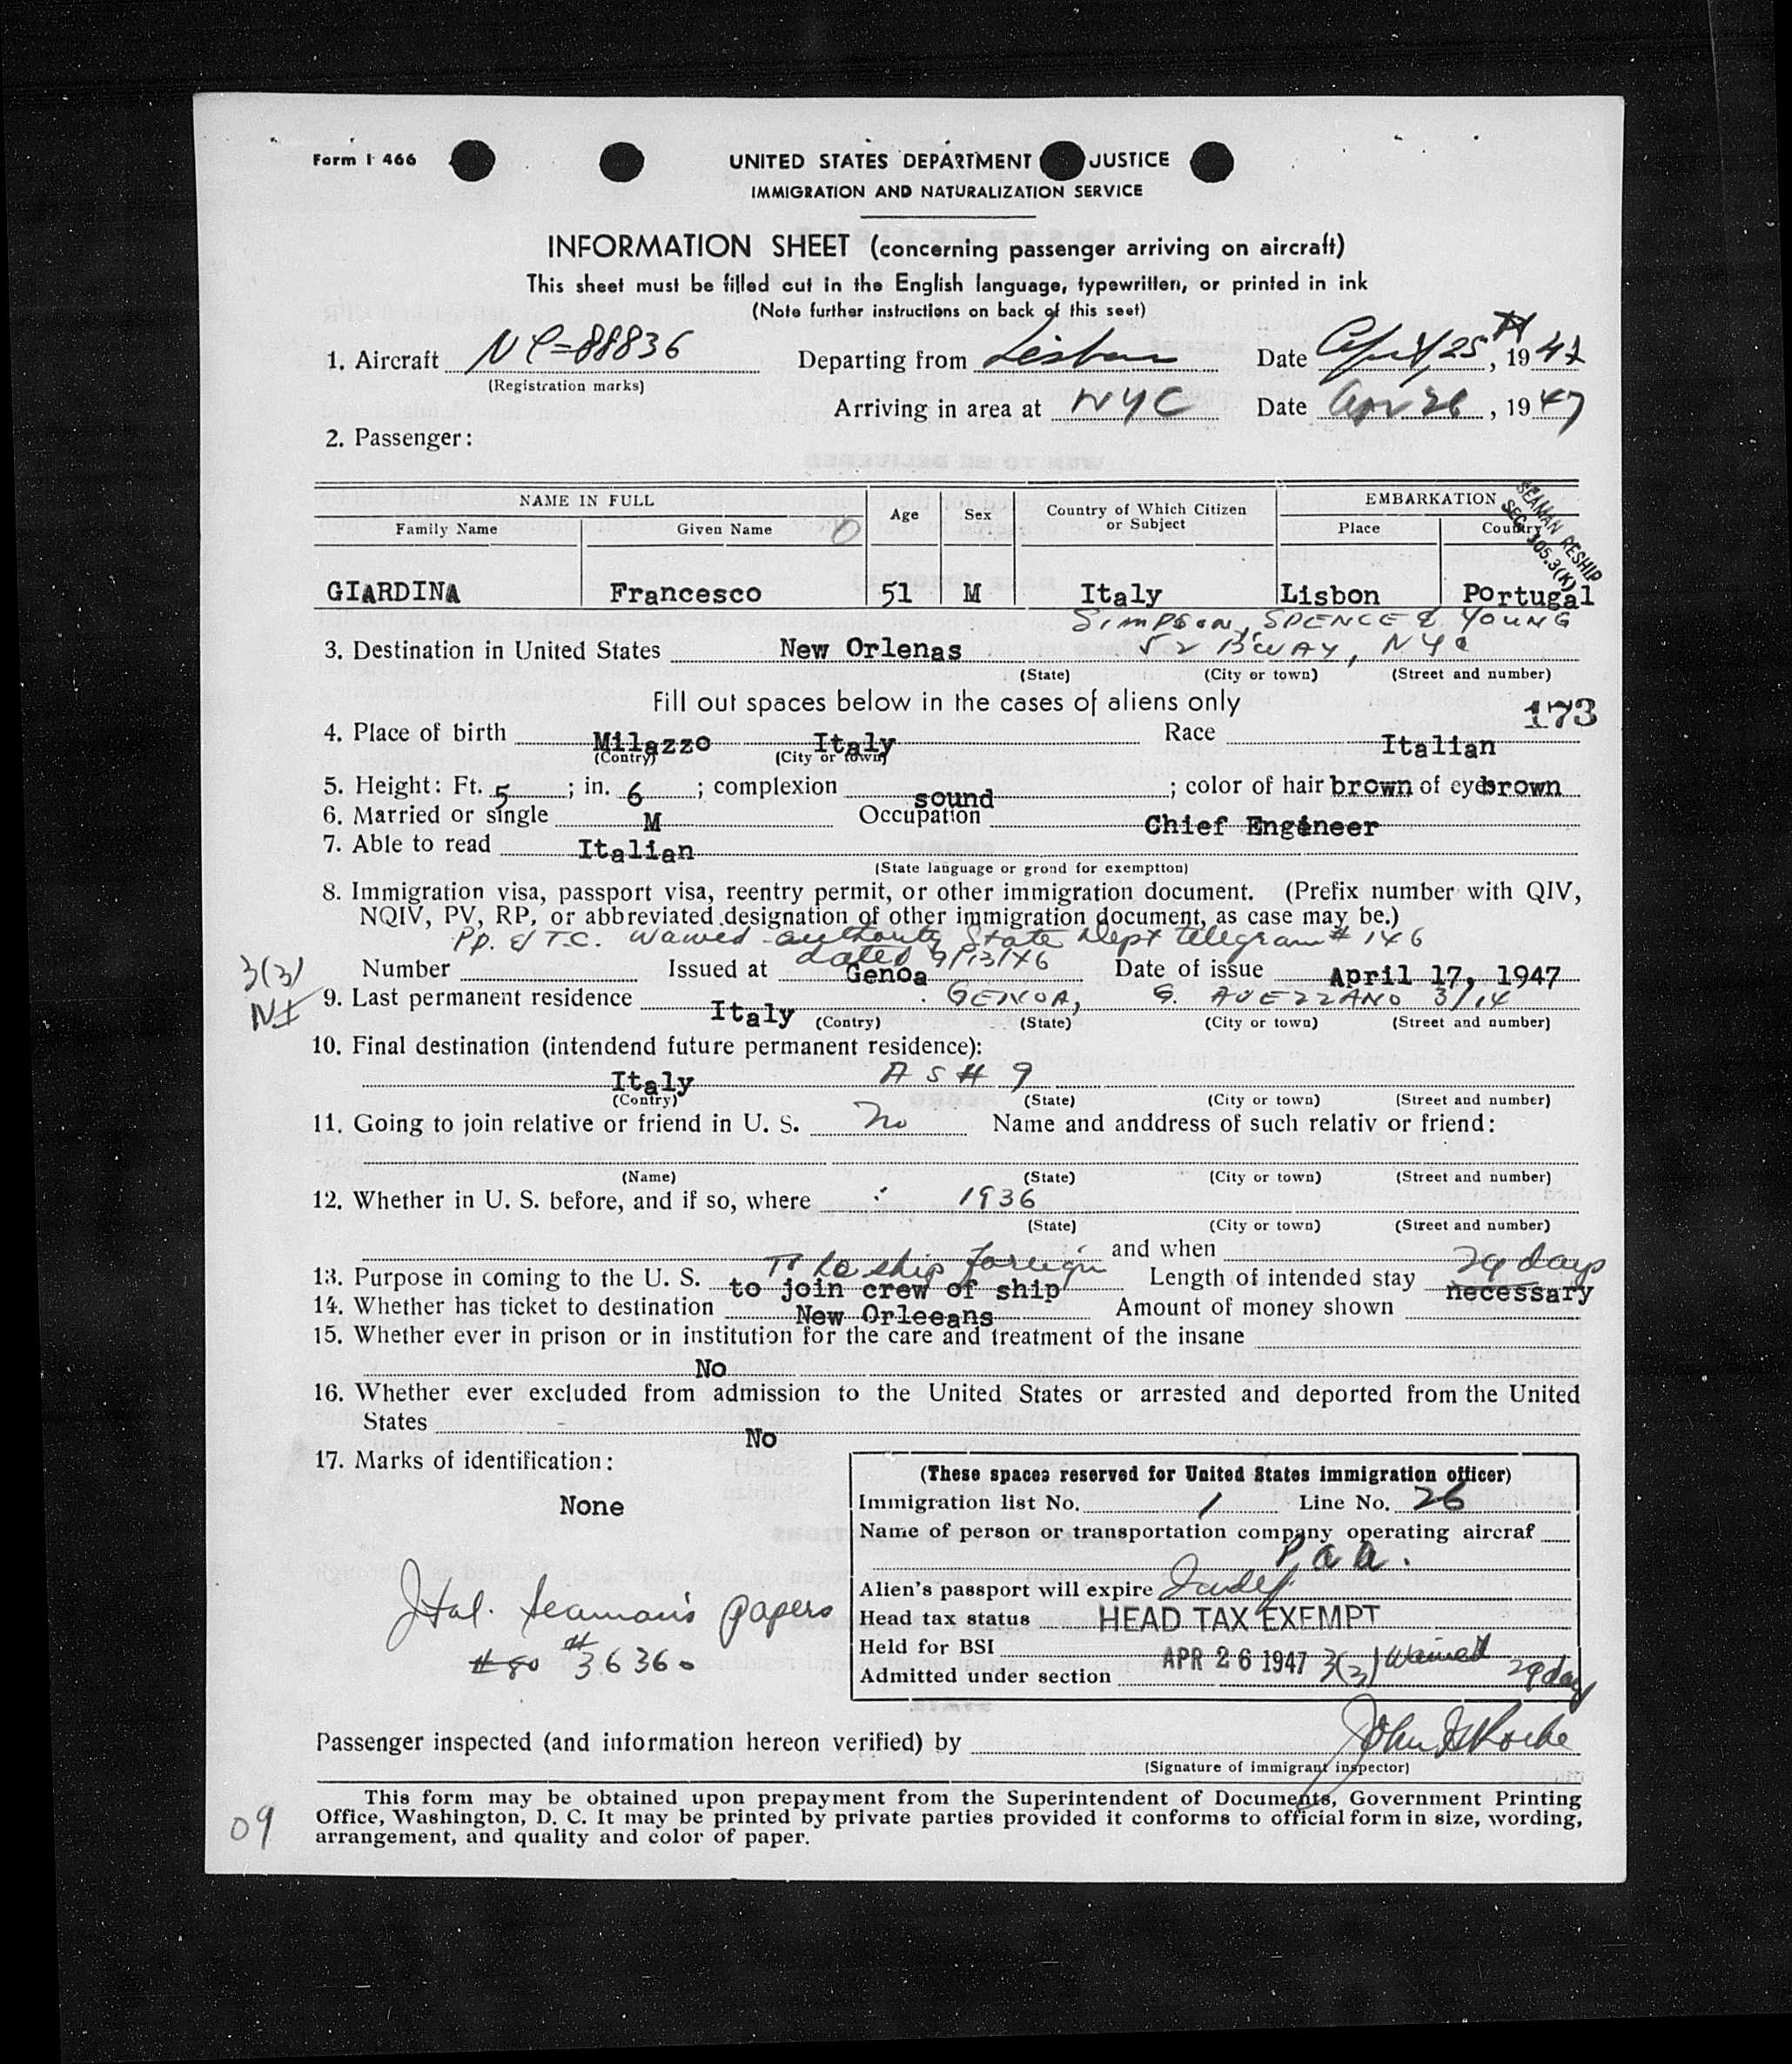 Form I 466
UNITED STATES DEPARTMENT JUSTICE
IMMIGRATION AND NATURALIZATION SERVICE
INFORMATION SHEET (concerning passenger arriving on aircraft)
This sheet must be filled out in the English language, typewritten, or printed in ink
(Note further instructions on back of this seet)
1. Aircraft NC=88836 Departing from Lisbon Date April, 25, 1947
(Registration marks)
Arriving in area at NYC Date Apr 26, 1947
2. Passenger:
NAME IN FULL Age Sex Country of Which Citizen or Subject EMBARKATION
Family Name Given Name Place Country
SEAMAN RESHIP
SEC. 105.3(K)
GIARDINA Francesco 51 M Italy Lisbon Portugal
SIMPSON, SPENCE & YOUNG
3. Destination in United States New Orlenas 52 B'WAY, NYC
(State) (City or town) (Street and number)
Fill out spaces below in the cases of aliens only
173
4. Place of birth Milazzo Italy Race Italian
(Contry) (City or town)
5. Height: Ft. 5 ; in. 6 ; complexion sound ; color of hair brown of eyes brown
6. Married or single M Occupation Chief Engineer
7. Able to read Italian
(State language or grond for exemption)
8. Immigration visa, passport visa, reentry permit, or other immigration document. (Prefix number with QIV,
NQIV, PV, RP, or abbreviated designation of other immigration document, as case may be.)
Pp. & T.C. waived authority State Dept telegram # 146
dated 9/13/46
3(3) Number Issued at Genoa Date of issue April 17, 1947
NI 9. Last permanent residence Italy GENOA, G. AVEZZANO 3/14
(Contry) (State) (City or town) (Street and number)
10. Final destination (intendend future permanent residence):
Italy AS # 9
(Contry) (State) (City or town) (Street and number)
11. Going to join relative or friend in U. S. No Name and anddress of such relativ or friend:
(Name) (State) (City or town) (Street and number)
12. Whether in U. S. before, and if so, where 1936
(State) (City or town) (Street and number)
and when
To reship foreign 29 days
13. Purpose in coming to the U. S. to join crew of ship Length of intended stay necessary
14. Whether has ticket to destination New Orleeans Amount of money shown
15. Whether ever in prison or in institution for the care and treatment of the insane
No
16. Whether ever excluded from admission to the United States or arrested and deported from the United
States No
17. Marks of identification:
None
Ital. seaman's papers
#80 #36360
(These spaces reserved for United States immigration officer)
Immigration list No. 1 Line No. 26
Name of person or transportation company operating aircraf
P.a.a.
Alien's passport will expire Indef.
Head tax status HEAD TAX EXEMPT
Held for BSI
Admitted under section APR 26 1947 3(3) Waived 29 day
Passenger inspected (and information hereon verified) by
(Signature of immigrant inspector)
This form may be obtained upon prepayment from the Superintendent of Documents, Government Printing
Office, Washington, D. C. It may be printed by private parties provided it conforms to official form in size, wording,
arrangement, and quality and color of paper.
09